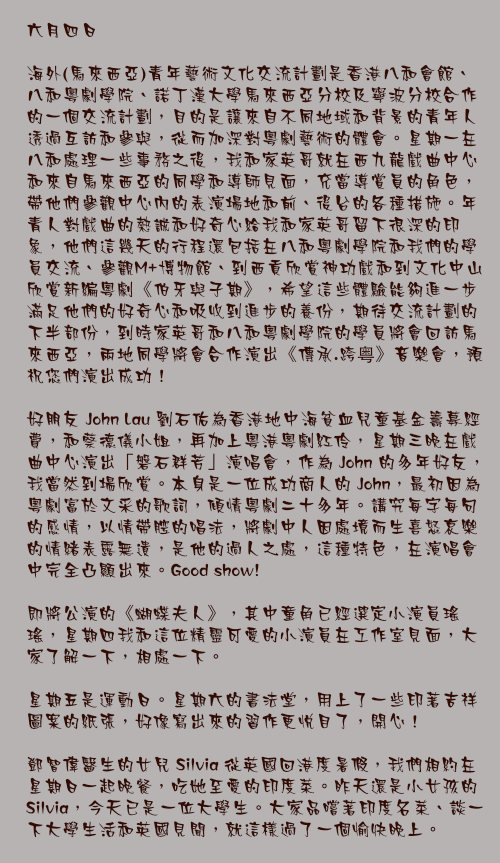 六月四日
海外(馬來西亞)青年藝術文化交流計劃是香港八和會館、
八和粵劇學院、諾丁漢大學馬來西亞分校及寧波分校合作
的一個交流計劃，目的是讓來自不同地域和背景的青年人
透過互訪和參與，從而加深對粵劇藝術的體會。星期一在
八和處理一些事務之後，我和家英哥就在西九龍戲曲中心
和來自馬來西亞的同學和導師見面，充當導賞員的角色，
帶他們參觀中心內的表演場地和前、後台的各種措施。年
青人對戲曲的熱誠和好奇心給我和家英哥留下很深的印
象，他們這幾天的行程還包括在八和粵劇學院和我們的學
員交流、參觀M+博物館、到西貢欣賞神功戲和到文化中心
欣賞新編粵劇《伯牙與子期》，希望這些體驗能夠進一步
滿足他們的好奇心和吸收到進步的養份，期待交流計劃的
下半部份，到時家英哥和八和粵劇學院的學員將會回訪馬
來西亞，兩地同學將會合作演出《傳承.跨粵》音樂會，預
祝您們演出成功！
好朋友 John Lau 劉石佑為香港地中海貧血兒童基金籌募經
費，和蔡德儀小姐，再加上粵港粵劇紅伶，星期三晚在戲
曲中心演出「磐石群芳」演唱會，作為 John 的多年好友，
我當然到場欣賞。本身是一位成功商人的 John，最初因為
粵劇富於文采的歌詞，傾情粵劇二十多年。講究每字每句
的感情，以情帶腔的唱法，將劇中人因處境而生喜怒哀樂
的情緒表露無遺，是他的過人之處，這種特色，在演唱會
中完全凸顯出來。Good show!
即將公演的《蝴蝶夫人》，其中童角已經選定小演員瑤
瑤，星期四我和這位精靈可愛的小演員在工作室見面，大
家了解一下，相處一下。
星期五是運動日。星期六的書法堂，用上了一些印著吉祥
圖案的紙張，好像寫出來的習作更悅目了，開心！
鄭智偉醫生的女兒 Silvia 從英國回港度暑假，我們相約在
星期日一起晚餐，吃她至愛的印度菜。昨天還是小女孩的
Silvia，今天已是一位大學生。大家品嚐著印度名菜、談一
下大學生活和英國見聞，就這樣過了一個愉快晚上。